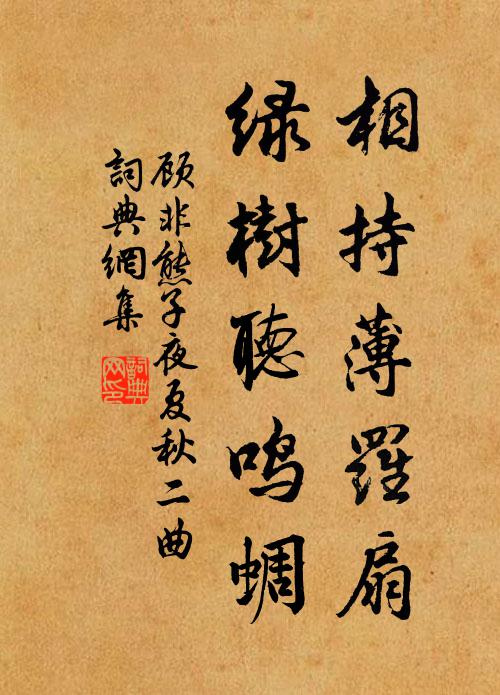 相持薄羅扇
緑樹聽鸣蜩
顾非熊子夜夏秋二曲
詞典網集
詞典网印